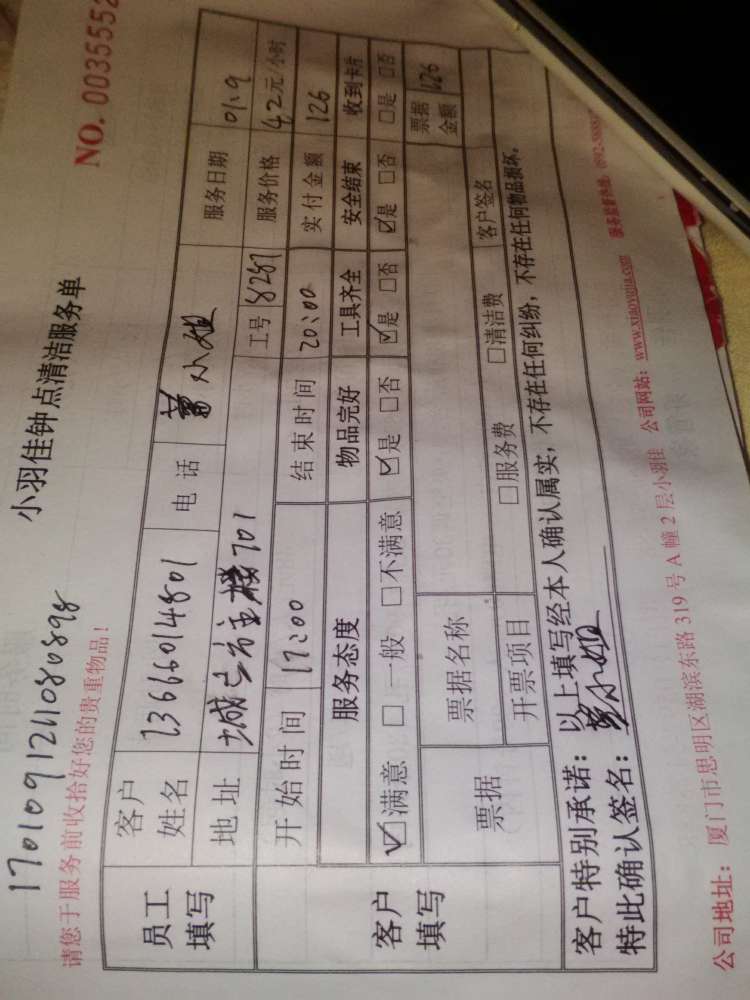 17010912411080898
小羽佳钟点清洁服务单
NO. 0035552
请您于服务前收拾好您的贵重物品！
员工填写
客户姓名 13666014801 电话 小姐 服务日期 01.9
地址 701 工号 8287 服务价格 42元/小时
客户填写
开始时间 17:00 结束时间 20:00 实付金额 126
服务态度 物品完好 工具齐全 安全结束 收到卡片
☑满意 □一般 □不满意 ☑是 □否 ☑是 □否 ☑是 □否 □是 □否
票据 票据名称 票据金额 126
开票项目 □服务费 □清洁费 客户签名
客户特别承诺：以上填写经本人确认属实，不存在任何纠纷，不存在任何物品损坏。
特此确认签名： 小姐
公司地址：厦门市思明区湖滨东路 319 号 A 幢 2 层小羽佳 公司网站：www.xiaoyujia.com 服务监督热线：